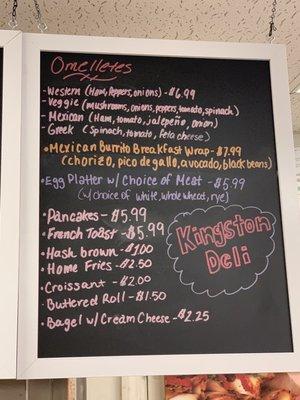 Omelletes
- Western (Ham, Peppers, onions) - $6.99
- Veggie (mushrooms, onions, peppers, tomato, spinach)
- Mexican (Ham, tomato, jalepeño, onion)
- Greek (Spinach, tomato, feta cheese)
• Mexican Burrito Breakfast Wrap - $7.99
(chorizo, pico de gallo, avocado, black beans)
• Egg Platter w/ Choice of Meat - $5.99
(w/ choice of white, whole wheat, rye)
• Pancakes - $5.99
• French Toast - $5.99
• Hash brown - $1.00
• Home Fries - $2.50
• Croissant - $2.00
• Buttered Roll - $1.50
• Bagel w/ Cream Cheese - $2.25
Kingston
Deli